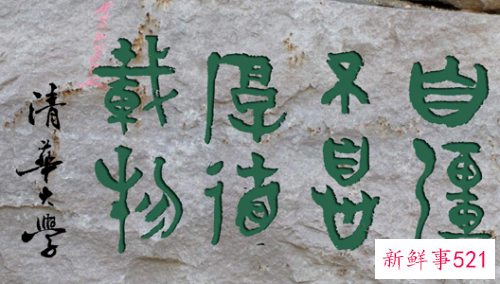 自彊
不息
厚德
載物
清華大學
新鲜事521